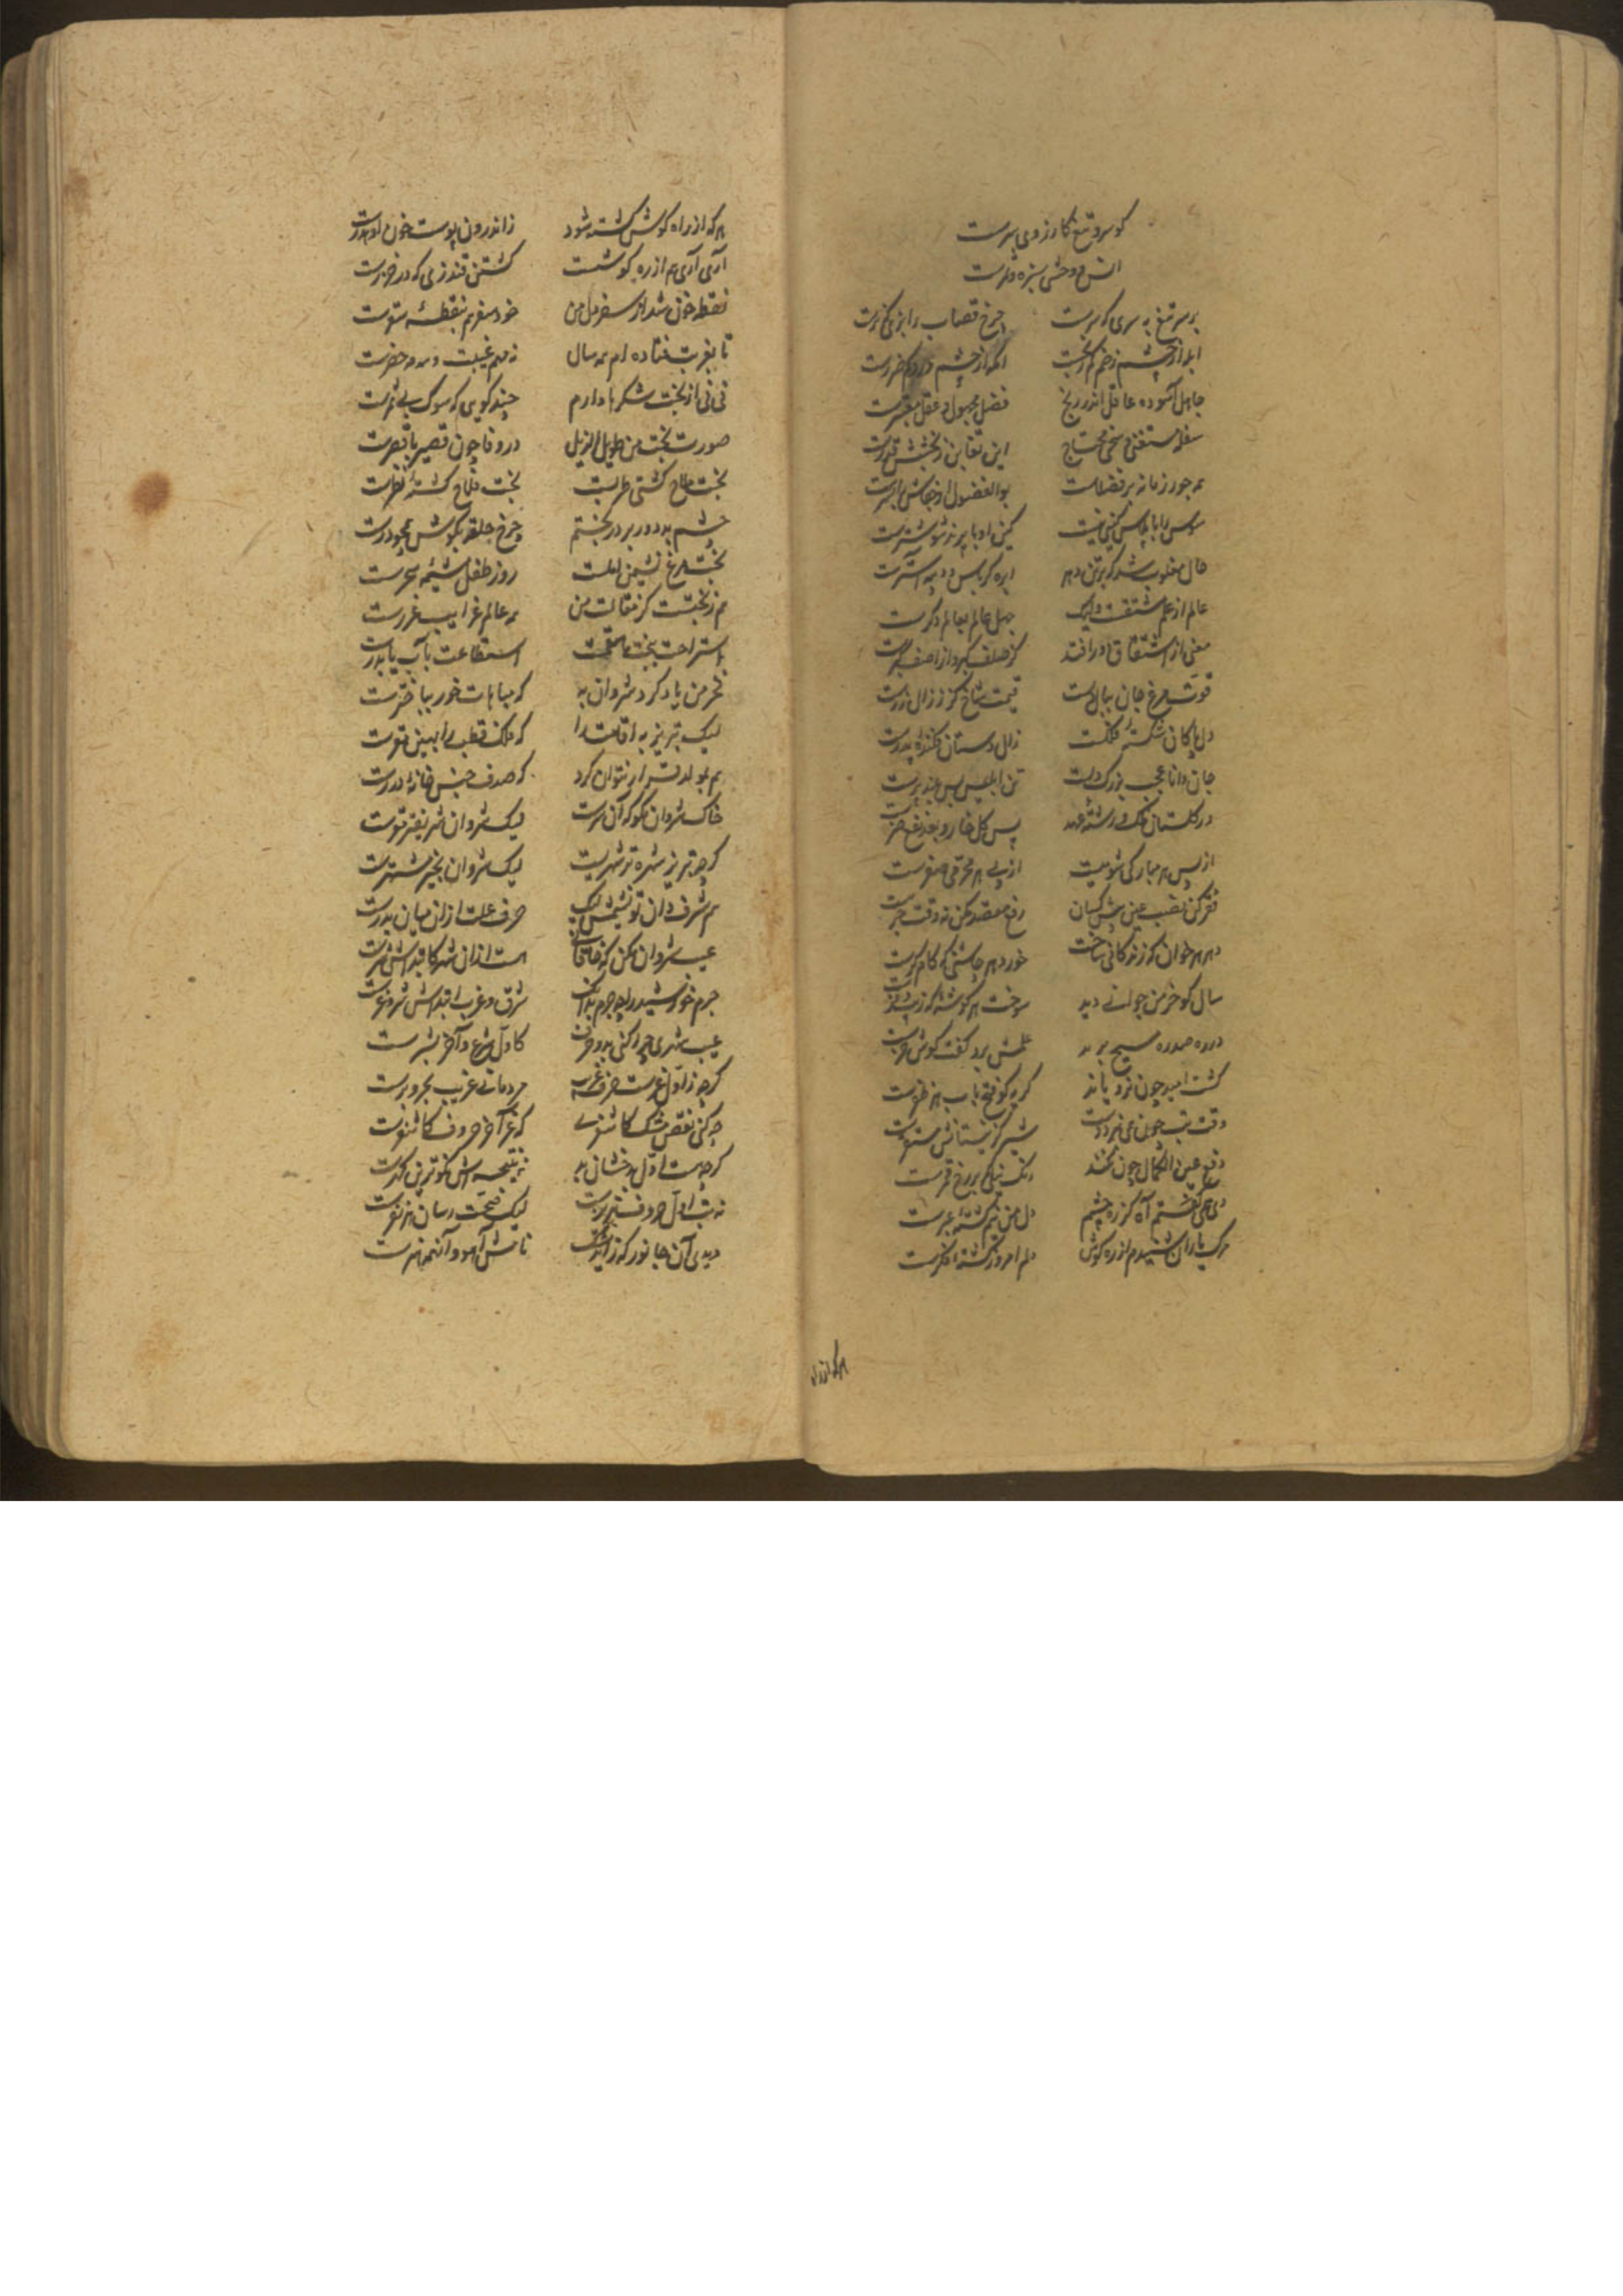 کو سر و تیغ کارزوی سرست
انس وحشی سبزه و
بر سر تیغ به سری که سرست چرخ قصاب را بزی گذرست
ابله از چشم زخم کم رنجست اکمه از چشم درد کم ضررست
جاهل آسوده عاقل اندر رنج فضل مجهول و عقل معتبرست
سفله مستغنی و سخی محتاج این تغابن ز بخشش قدرست
همه جور زمانه بر فضلاست بوالفضول از جفاش
سوس را با پلاس کینی نیست کین او با پرند شوشترست
حال مقلوب شد که بر تن دهر ابره کرباس و دیبه آسترست
عالم از علم مشتقست ولیک جهل عالم بعالم دگرست
معنی از اشتقاق دور افتد کز صلف کبر و از اصف کبرست
قوت مرغ جان ببال دلست قیمت شاخ کز ز زال زرست
دل پاکان شکسته فلکست زال دستان فکنده پدرست
جان دانا عجب بزرک دلست تن ابلیس بس
در گلستان عهد پس گل خار و بعد نفع ضرست
از پس هر مبارکی شومیست از پی هر محرمی صفرست
فقر کن نصب عین پیش کسان رفع قصه مکن نه وقت جرست
دهر هر خوان که زندکانی ساخت خورد هر چاشنی که کام کرست
سال کو خرمن جوانی دید سوخت هر خوشه که زیب و فرست
درزه صدره مسیح برید علمش برد و گفت کوش خرست
کشت امید چون نرویاند گریه کو فتح باب هر نظرست
وقت تب چون بنی نبرد تب شیر گر نیستانش مستقرست
دفع عین الکمال چون نکند رنگ نیلی که بر رخ قمرست
دی همی گفتم آه کز ره چشم دل من نیم کشته عبرست
مرگ یاران شنیدم از ره گوش دلم امروز کشته فکرست
هر که از راه
هر که از راه گوش کشته شود زاندرون پوست خون او هدرست
آری آری هم از ره گوشست کشتن قندزی که در خزرست
نقطه خون شد از سفر دل من خود سفر هم بنقطه سقرست
تا بغربت فتاده ام همه سال نه مهم غیبت و سه مه حضرست
نی نی از بخت شکرها دارم چند گویی که سوک بی ثمرست
صورت بخت من طویل الذیل در وفا چون قصیر با قصرست
بخت ملاح کشتی طربست بخت فلاح کشته نظرست
چشم بد دور بر در بختم چرخ حلقه بگوش همچو درست
بخت مرغ نشیمن املست روز طفل مشیمه سحرست
هم ز بختست کز مقالت من همه عالم غرایب غررست
استراحت ببخت یا نعمت استطاعت بآب یا بدرست
فخر من یاد کرد شروان به که مباهات خور بباخترست
لیک تبریز به اقامت را که فلک قطب را بهین مقرست
هم بمولد قرار نتوان کرد که صدف حبس خانه دررست
خاک شروان مگو که آن شرست لیک شروان شریفتر ثمرست
گرچه تبریز شهره تر شهریست لیک شروان بخیر مشتهرست
هم شرف دان تو نیمیش لیک حرف علت از آن میان بدرست
عیب شروان مکن که خاقانی هست از آن شهر کابتداش شرست
جرم خورشید را چه جرم بدانک شرق و غرب ابتداش شر و غرست
عیب شهری چرا کنی بدو حرف کاول شرع و آخر بشرست
گرچه ز اول غرست حرف غریب مرد نامی غریب بحر و برست
چه کنی نقص مشک کاشغری که غر آخر حروف کاشغرست
گرچه هست اول بدخشان بد نه نتیجه اش نکوترین گهرست
نه تب اول حروف تبریزست لیک صحت رسان هر نفرست
دیدی آن جانور که زاید مشک نامش آهو و آن همه هنرست